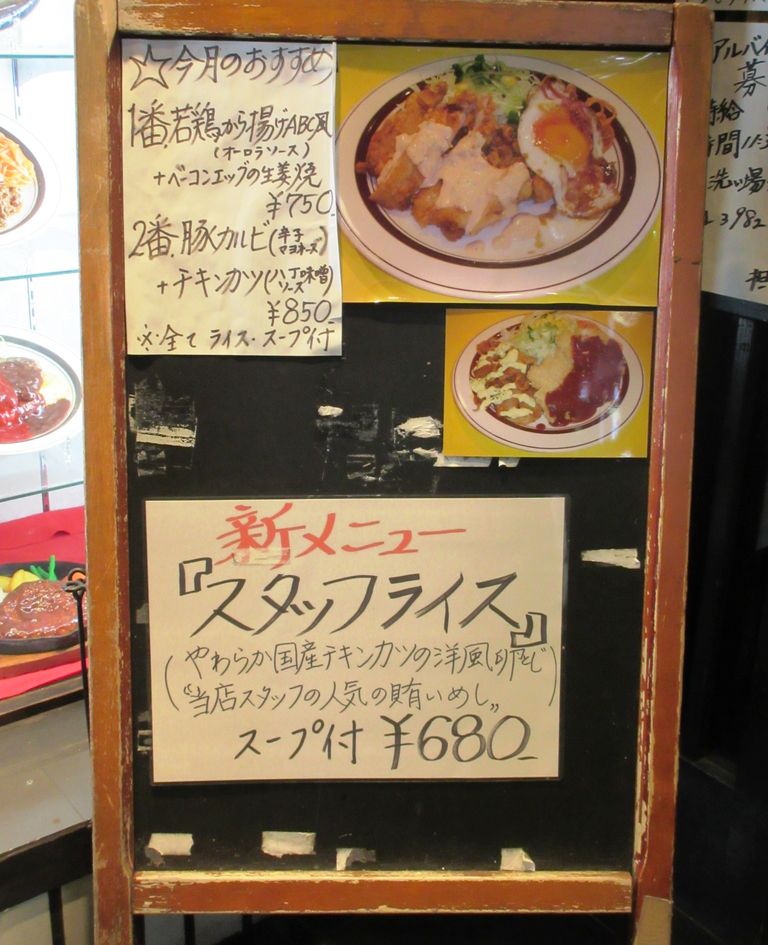 ☆今月のおすすめ
1番.若鶏から揚げABC風
(オーロラソース)
+ベーコンエッグの生姜焼
¥750
2番.豚カルビ(辛子マヨネーズ)
+チキンカツ(八丁味噌ソース)
¥850
※全てライス・スープ付
新メニュー
『スタッフライス』
(やわらか国産チキンカツの洋風卵とじ)
"当店スタッフの人気の賄いめし"
スープ付 ¥680
アルバイ
募
時給
時間
洗い場